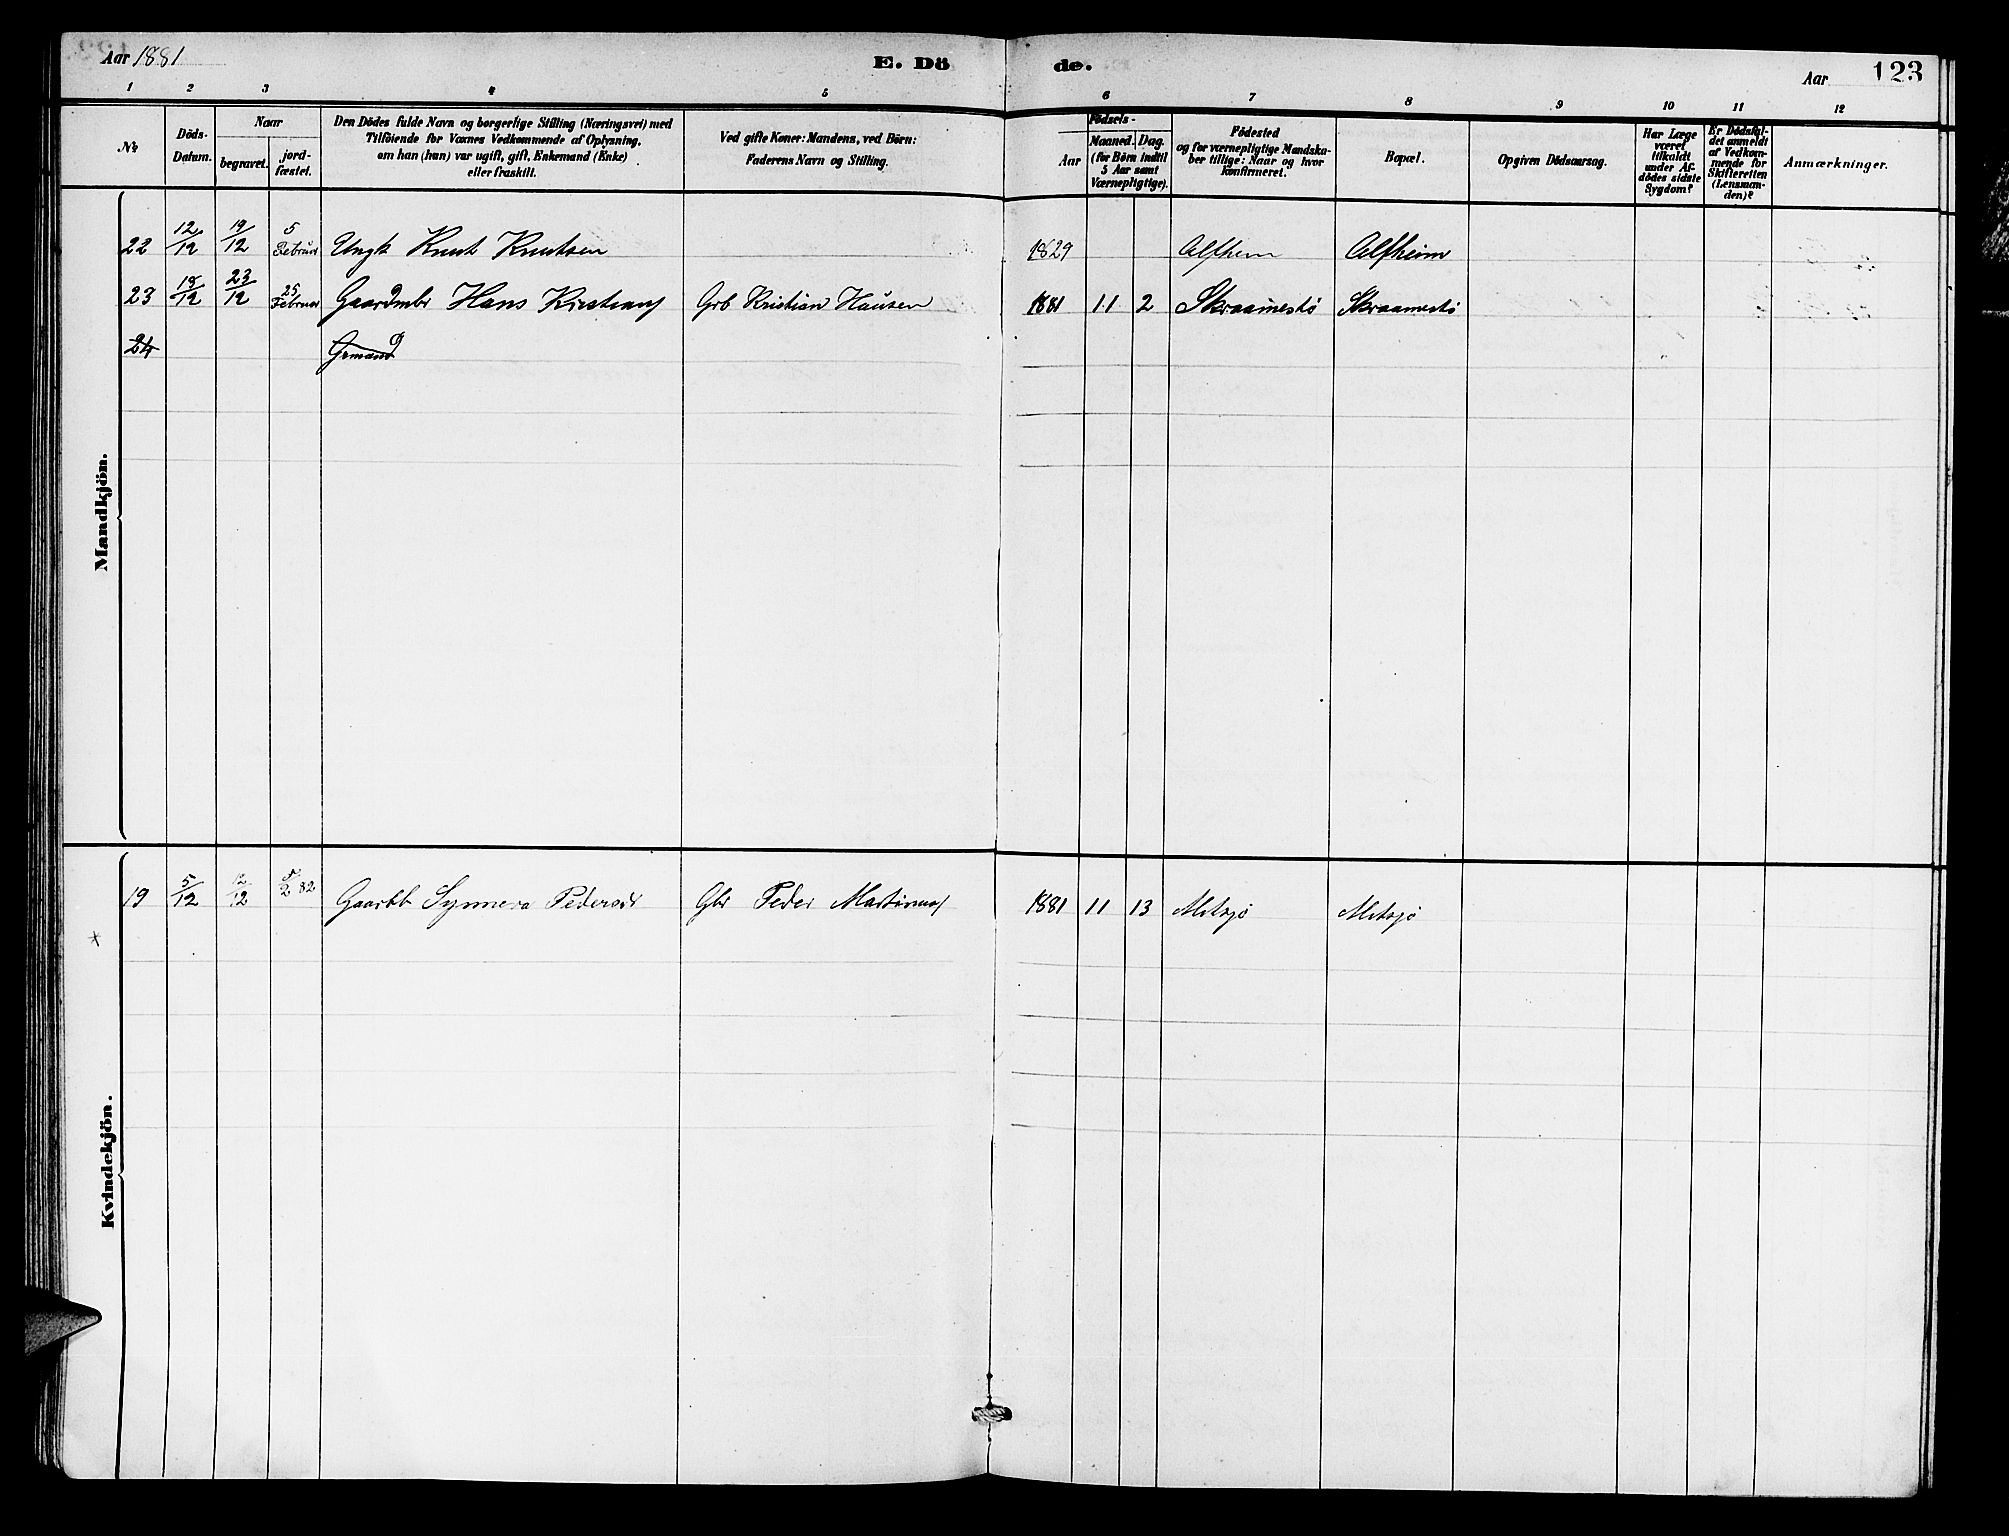 Aar 1881
E. Dö
de.
Aar
123
1 2 3 4 5 6 7 8 9 10 11 12
No
Döds-
Datum.
Naar
begravet.
jord-
fæstet.
Den Dödes fulde Navn og borgerlige Stilling (Næringsvei) med
Tilföiende for Voxnes Vedkommende af Oplysning,
om han (hun) var ugift, gift, Enkemand (Enke)
eller fraskilt.
Ved gifte Koner: Mandens, ved Börn:
Faderens Navn og Stilling.
Födsels-
Aar
Maaned.
Dag.
(for Börn indtil
5 Aar samt
Værnepligtige).
Födested
og for værnepligtige Mandska-
ber tillige: Naar og hvor
konfirmeret.
Bopæl.
Opgiven Dödsaarsag.
Har Læge
været
tilkaldt
under Af-
dödes sidste
Sygdom?
Er Dödsfal-
det anmeldt
af Vedkom-
mende for
Skifteretten
(Lensman-
den)?
Anmærkninger.
Mandkjön.
22 12/12 19/12 5 Februar Ungk Knut Knutsen 1829 Alfheim Alfheim
23 19/12 23/12 25 Februar Gaardmbr Hans Kristians Grb Kristian Hansen 1881 11 2 Skraamestö Skraamestö
24 Grmand
Kvindekjön.
19 5/12 12/12 5/2 82 Gaarbb Synneva Pedersd Gbr Peder Martinus 1881 11 13 Metsjö Metsjö